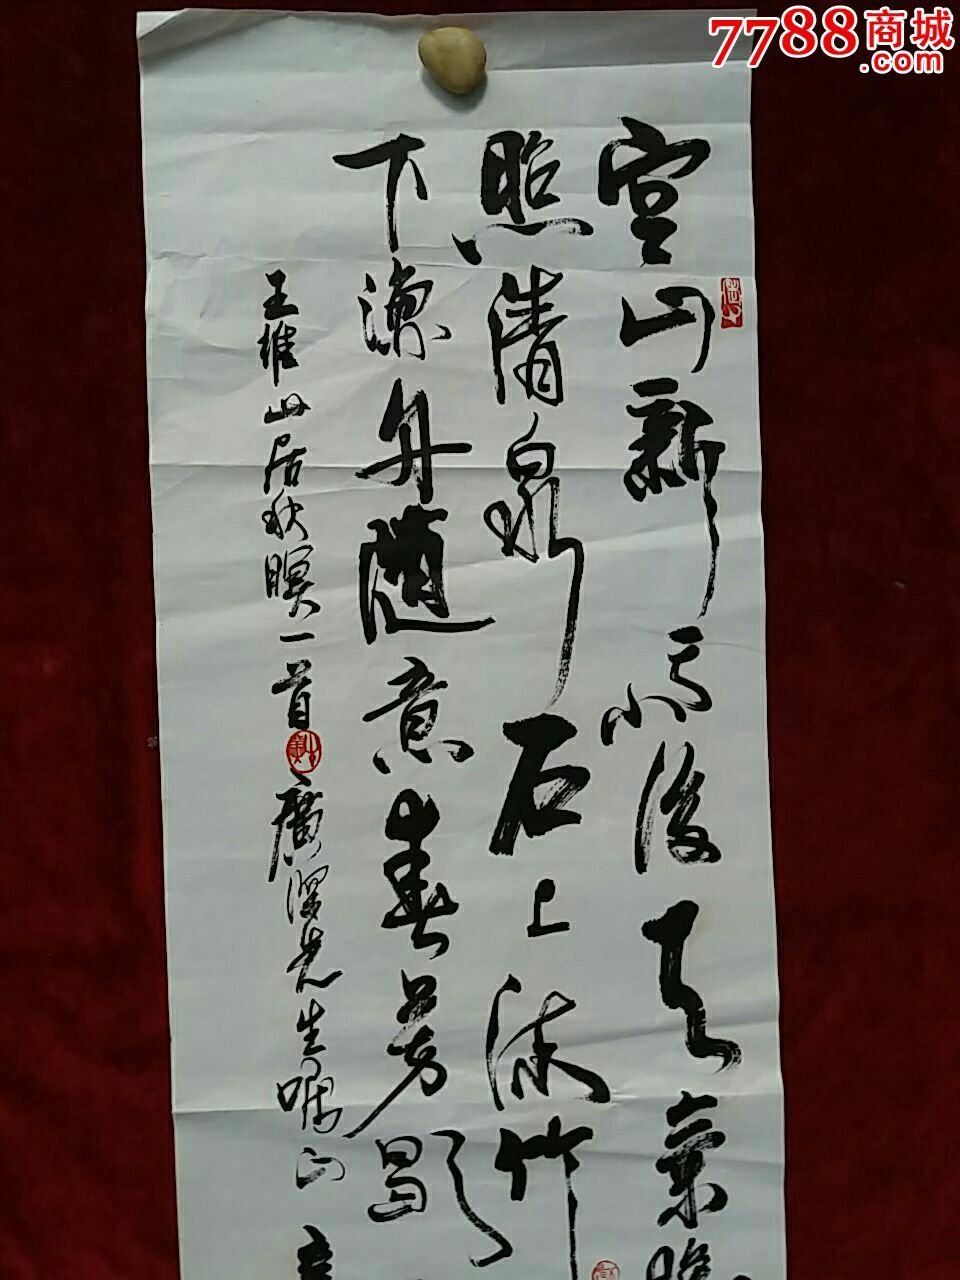 7788商城
.com
空山新雨後天氣晚
照清泉石上流竹
下漁舟隨意春芳歇
王維山居秋暝一首 廣 先生囑正